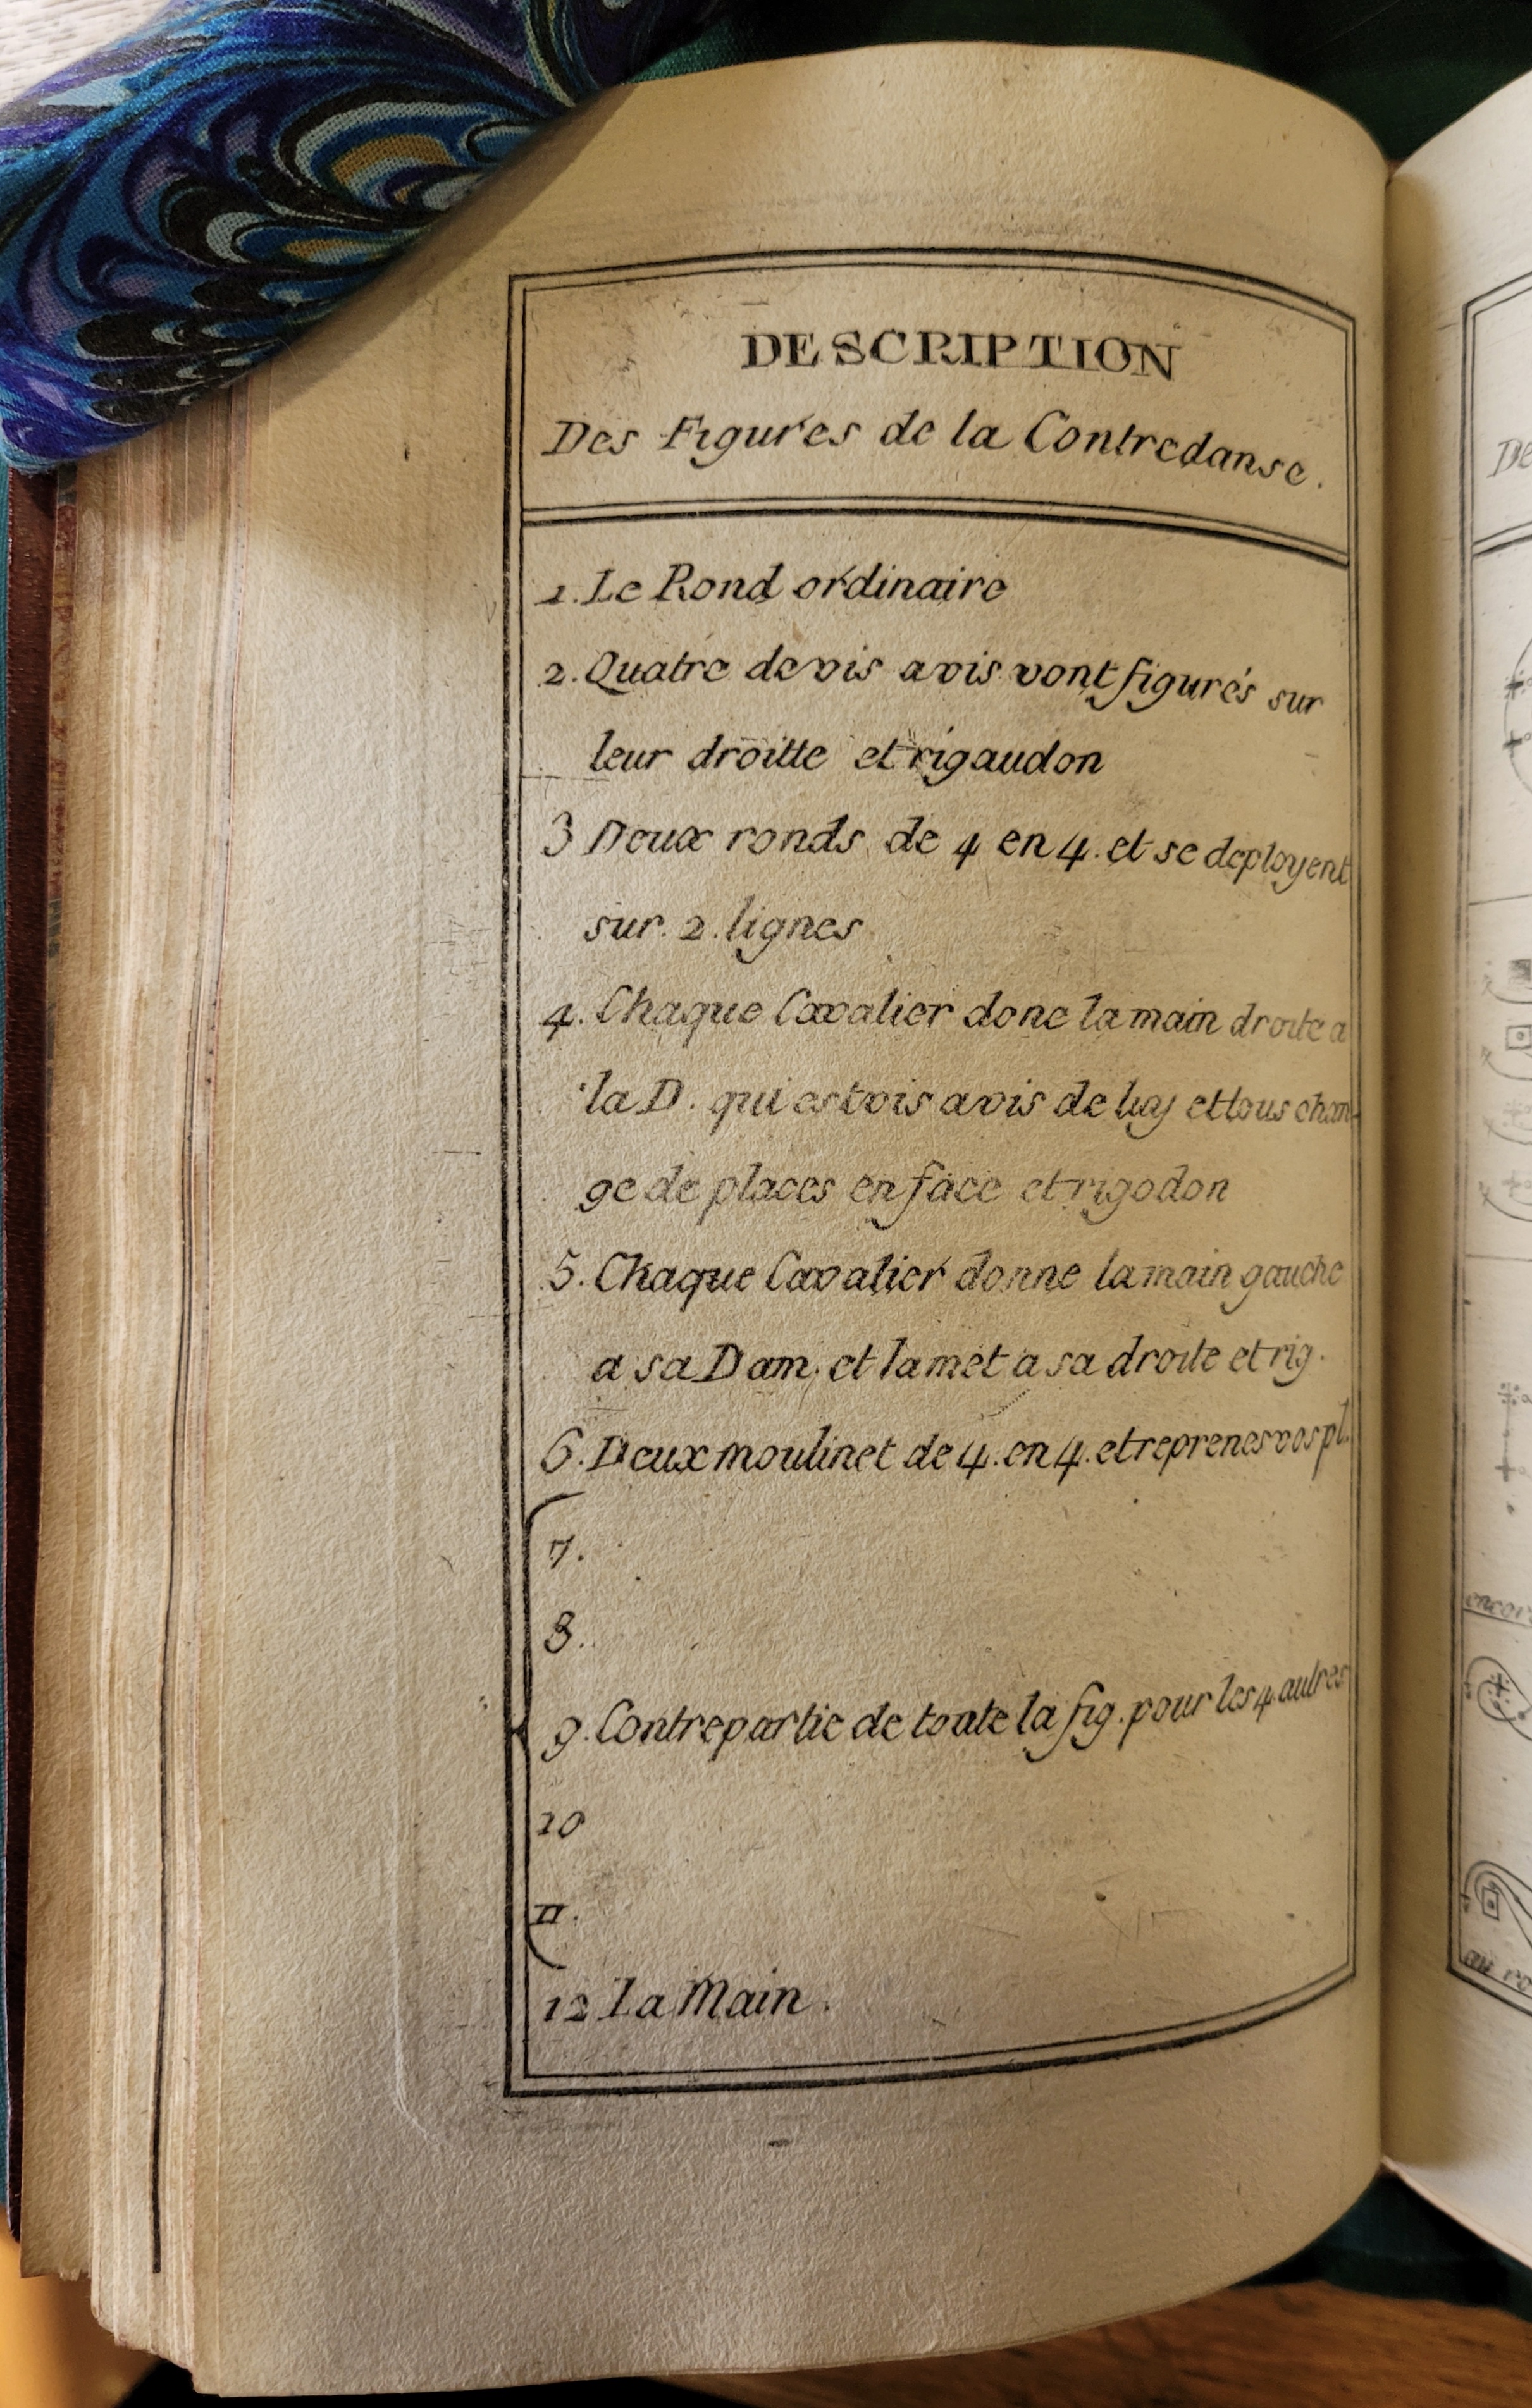 DESCRIPTION
Des Figures de la Contredanse.
1. Le Rond ordinaire
2. Quatre de vis a vis vont figurés sur
leur droitte et rigaudon
3 Deux ronds de 4 en 4. et se deployent
sur. 2. lignes
4. Chaque Cavalier done la main droite a
la D. qui est vis a vis de luy et tous chan-
ge de places en face et rigodon
5. Chaque Cavalier donne la main gauche
a sa Dam. et la met a sa droite et rig.
6. Deux moulinet de 4. en 4. et reprenes vos pl.
7.
8.
9. Contrepartie de toute la fig. pour les 4 autres
10
11.
12 La Main.
De
encor
au ro